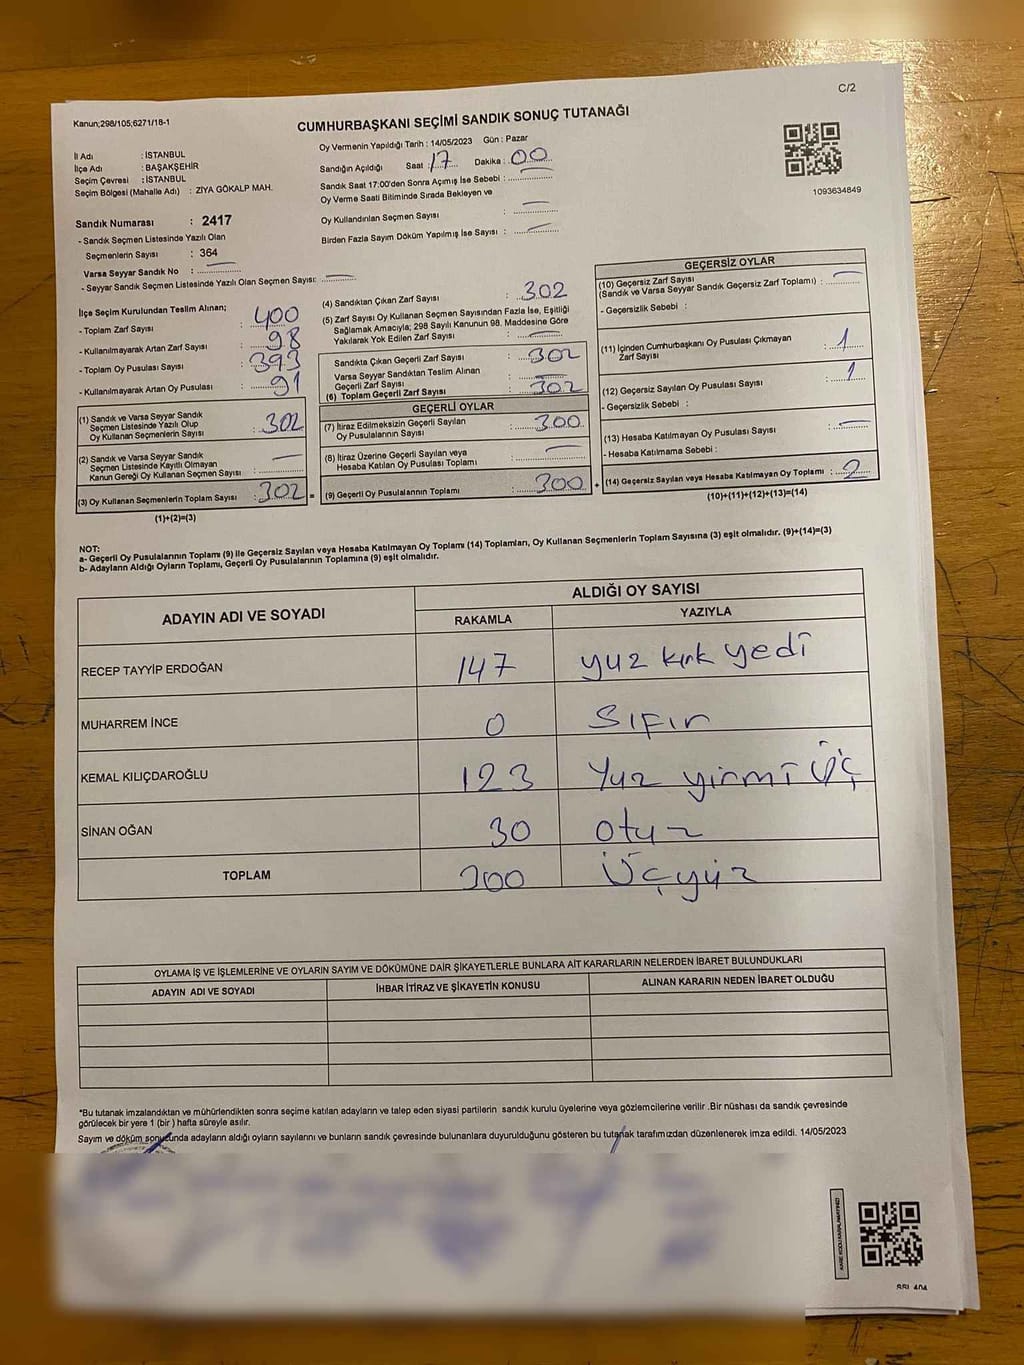 C/2
Kanun;298/105;6271/18-1
CUMHURBAŞKANI SEÇİMİ SANDIK SONUÇ TUTANAĞI
Oy Vermenin Yapıldığı Tarih : 14/05/2023 Gün : Pazar
İl Adı : İSTANBUL
İlçe Adı : BAŞAKŞEHİR
Seçim Çevresi : İSTANBUL
Seçim Bölgesi (Mahalle Adı) : ZİYA GÖKALP MAH.
Sandığın Açıldığı Saat 17 Dakika : 00
Sandık Saat 17:00'den Sonra Açımış İse Sebebi :
Oy Verme Saati Bitiminde Sırada Bekleyen ve
Oy Kullandırılan Seçmen Sayısı : —
Birden Fazla Sayım Döküm Yapılmış İse Sayısı : —
1093634849
Sandık Numarası : 2417
- Sandık Seçmen Listesinde Yazılı Olan
Seçmenlerin Sayısı : 364
Varsa Seyyar Sandık No : —
- Seyyar Sandık Seçmen Listesinde Yazılı Olan Seçmen Sayısı: —
İlçe Seçim Kurulundan Teslim Alınan;
- Toplam Zarf Sayısı : 400
- Kullanılmayarak Artan Zarf Sayısı : 98
- Toplam Oy Pusulası Sayısı : 393
- Kullanılmayarak Artan Oy Pusulası : 91
(1) Sandık ve Varsa Seyyar Sandık
Seçmen Listesinde Yazılı Olup
Oy Kullanan Seçmenlerin Sayısı : 302
(2) Sandık ve Varsa Seyyar Sandık
Seçmen Listesinde Kayıtlı Olmayan
Kanun Gereği Oy Kullanan Seçmen Sayısı : —
(3) Oy Kullanan Seçmenlerin Toplam Sayısı : 302 =
(1)+(2)=(3)
(4) Sandıktan Çıkan Zarf Sayısı : 302
(5) Zarf Sayısı Oy Kullanan Seçmen Sayısından Fazla İse, Eşitliği
Sağlamak Amacıyla; 298 Sayılı Kanunun 98. Maddesine Göre
Yakılarak Yok Edilen Zarf Sayısı : —
Sandıkta Çıkan Geçerli Zarf Sayısı : 302
Varsa Seyyar Sandıktan Teslim Alınan
Geçerli Zarf Sayısı : —
(6) Toplam Geçerli Zarf Sayısı : 302
GEÇERLİ OYLAR
(7) İtiraz Edilmeksizin Geçerli Sayılan
Oy Pusulalarının Sayısı : 300
(8) İtiraz Üzerine Geçerli Sayılan veya
Hesaba Katılan Oy Pusulası Toplamı : —
(9) Geçerli Oy Pusulalarının Toplamı : 300 +
GEÇERSİZ OYLAR
(10) Geçersiz Zarf Sayısı
(Sandık ve Varsa Seyyar Sandık Geçersiz Zarf Toplamı) : —
- Geçersizlik Sebebi :
(11) İçinden Cumhurbaşkanı Oy Pusulası Çıkmayan
Zarf Sayısı : 1
(12) Geçersiz Sayılan Oy Pusulası Sayısı : 1
- Geçersizlik Sebebi :
(13) Hesaba Katılmayan Oy Pusulası Sayısı : —
- Hesaba Katılmama Sebebi :
(14) Geçersiz Sayılan veya Hesaba Katılmayan Oy Toplamı : 2
(10)+(11)+(12)+(13)=(14)
NOT:
a- Geçerli Oy Pusulalarının Toplamı (9) ile Geçersiz Sayılan veya Hesaba Katılmayan Oy Toplamı (14) Toplamları, Oy Kullanan Seçmenlerin Toplam Sayısına (3) eşit olmalıdır. (9)+(14)=(3)
b- Adayların Aldığı Oyların Toplamı, Geçerli Oy Pusulalarının Toplamına (9) eşit olmalıdır.
ADAYIN ADI VE SOYADI ALDIĞI OY SAYISI
RAKAMLA YAZIYLA
RECEP TAYYİP ERDOĞAN 147 yuz kırk yedi
MUHARREM İNCE 0 Sıfır
KEMAL KILIÇDAROĞLU 123 Yuz yirmi üç
SİNAN OĞAN 30 otuz
TOPLAM 300 Üçyüz
OYLAMA İŞ VE İŞLEMLERİNE VE OYLARIN SAYIM VE DÖKÜMÜNE DAİR ŞİKAYETLERLE BUNLARA AİT KARARLARIN NELERDEN İBARET BULUNDUKLARI
ADAYIN ADI VE SOYADI İHBAR İTİRAZ VE ŞİKAYETİN KONUSU ALINAN KARARIN NEDEN İBARET OLDUĞU
*Bu tutanak imzalandıktan ve mühürlendikten sonra seçime katılan adayların ve talep eden siyasi partilerin sandık kurulu üyelerine veya gözlemcilerine verilir .Bir nüshası da sandık çevresinde
görülecek bir yere 1 (bir ) hafta süreyle asılır.
Sayım ve döküm sonucunda adayların aldığı oyların sayılarını ve bunların sandık çevresinde bulunanlara duyurulduğunu gösteren bu tutanak tarafımızdan düzenlenerek imza edildi. 14/05/2023